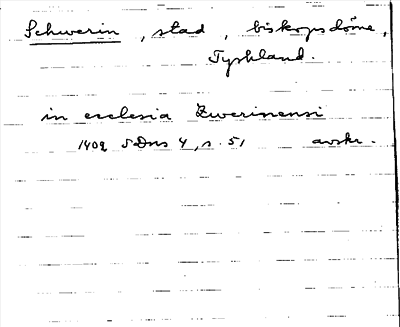 Schwerin, stad, biskopsdöme,
Tyskland.
in ecclesia Zwerinensi
1402 SDns 4, s. 51 avskr.